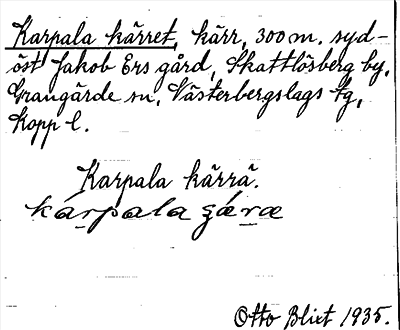 Karpala kärret, kärr, 300 m. syd-
öst Jakob Ers gård, Skattlösberg by,
Grangärde sn, Västerbergslags tg,
Kopp l.
Karpala kärrä.
Otto Blixt 1935.